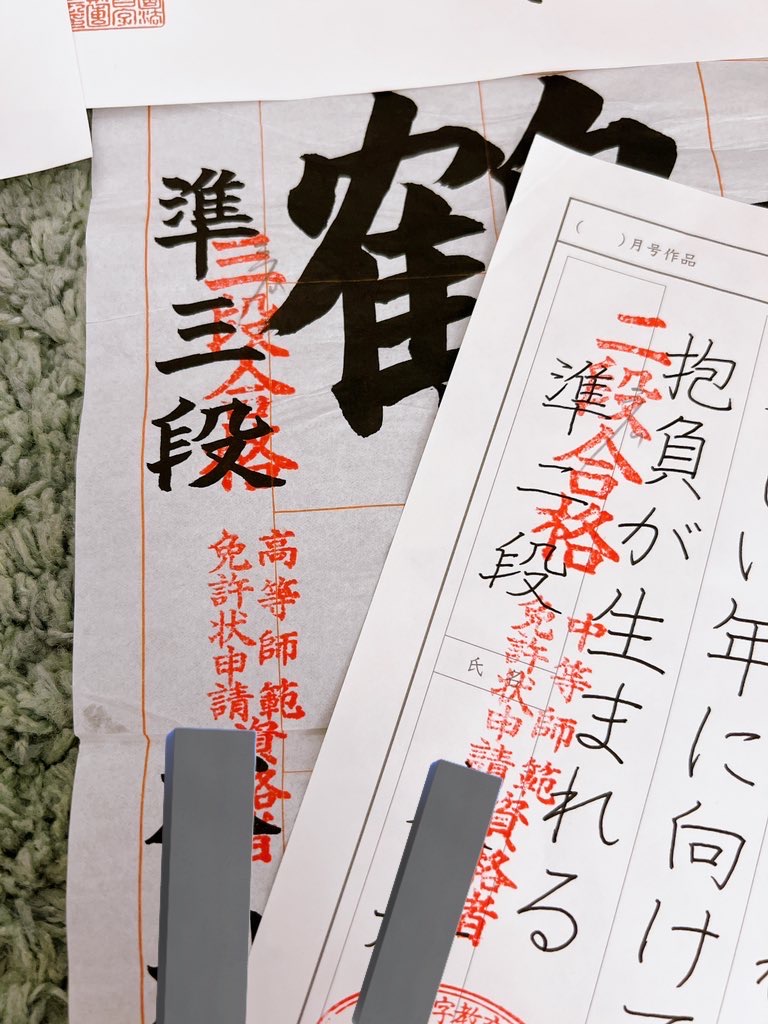 鶴
準三段
三段合格
高等師範資格者
免許状申請
( )月号作品
い年に向けて
抱負が生まれる
準二段
二段合格
中等師範資格者
免許状申請
氏名
字教育